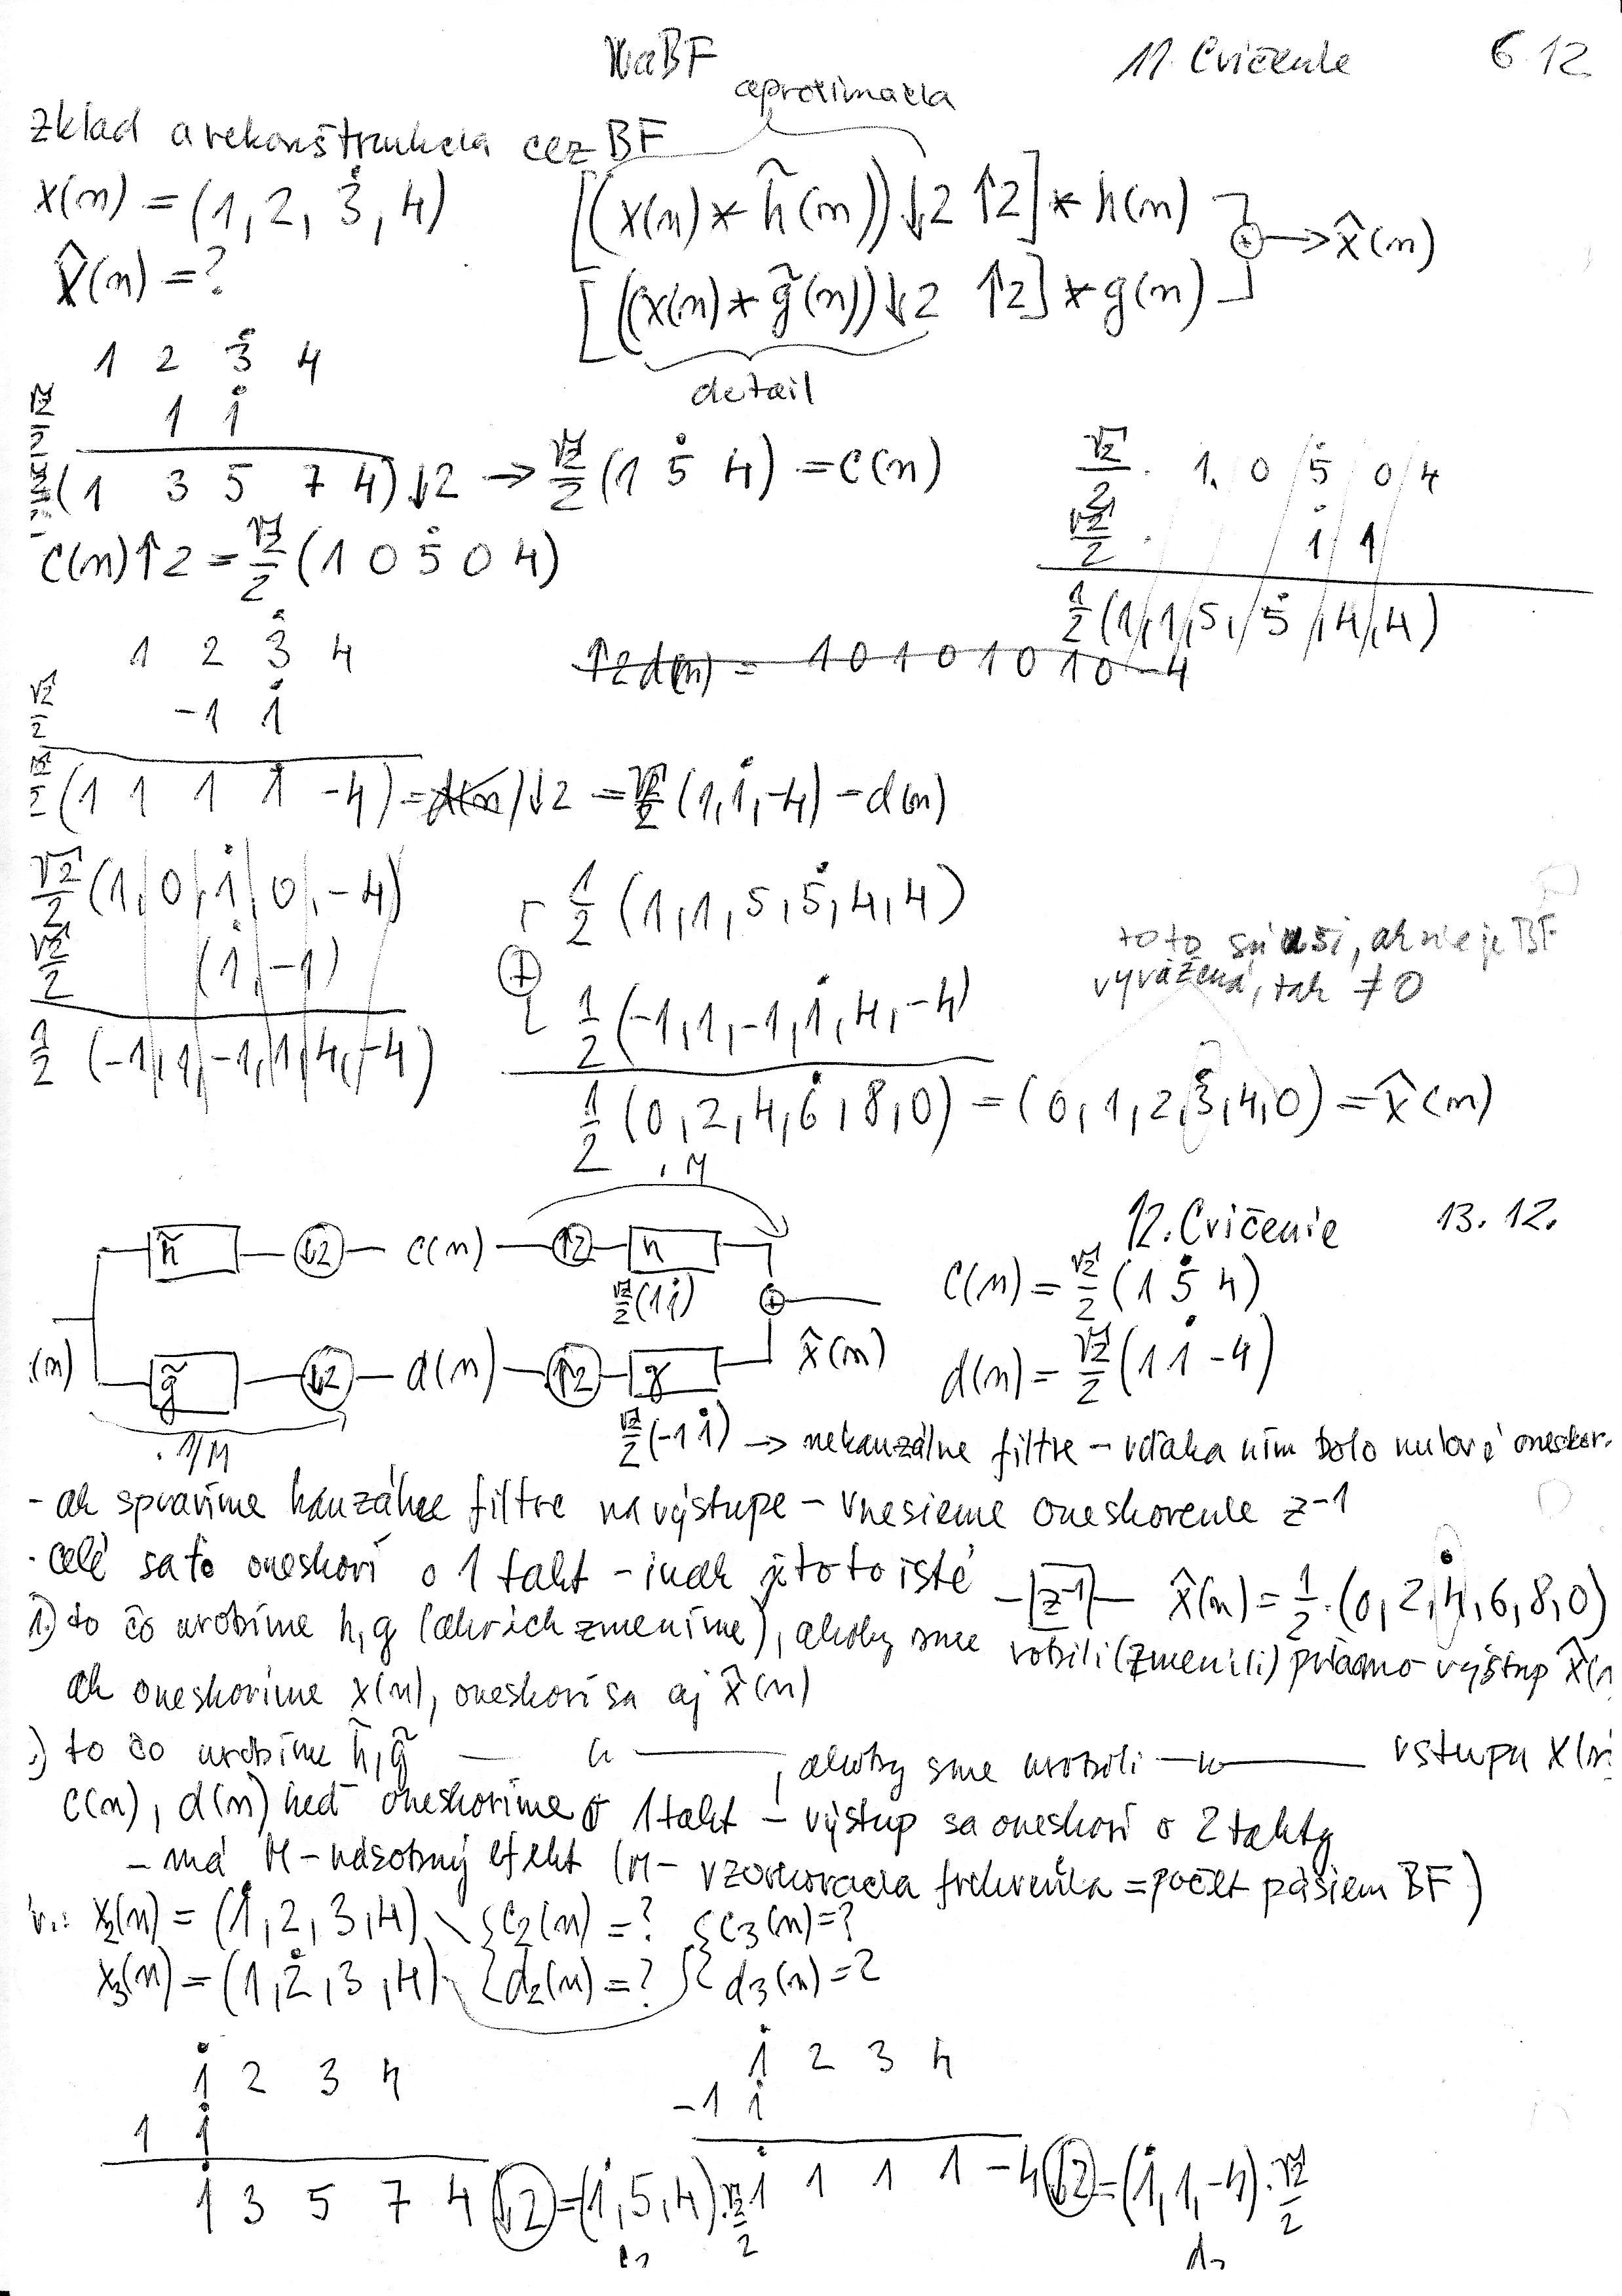 WaBF 11. Cvičenie 6.12
aproximacia
Zklad a rekonštrukcia cez BF
x(n) = (1, 2, 3̇, 4) [(x(n) * h̃(n))↓2 ↑2] * h(n)
x̂(n) = ? ⊕ → x̂(n)
[((x(n) * g̃(n))↓2 ↑2] * g(n)
detail
1 2 3̇ 4
√2/2 1 1̇
√2/2 (1 3 5 7 4)↓2 → √2/2 (1 5̇ 4) = c(n)
c(n)↑2 = √2/2 (1 0 5̇ 0 4)
√2/2 · 1, 0 5̇ 0 4
√2/2 · 1̇ 1
1/2 (1, 1, 5, 5̇, 4, 4)
1 2 3̇ 4
↑2 d(n) = 1 0 1 0 1 0 1 0 -4
√2/2 -1 1̇
√2/2 (1 1 1 1 -4) = d(n))↓2 = √2/2 (1, 1̇, -4) = d(n)
√2/2 (1, 0, 1̇, 0, -4)
√2/2 (1̇, -1)
1/2 (-1, 1, -1, 1, 4, -4)
1/2 (1, 1, 5, 5̇, 4, 4)
⊕
1/2 (-1, 1, -1, 1̇, 4, -4)
1/2 (0, 2, 4, 6̇, 8, 0) = (0, 1, 2, 3̇, 4, 0) = x̂(n)
ak nie je BF
vyvážená, tak ≠ 0
· M
12. Cvičenie 13. 12.
h̃ ↓2 c(n) ↑2 h
√2/2 (1 1̇) ⊕
c(n) = √2/2 (1 5̇ 4)
(n) g̃ ↓2 d(n) ↑2 g x̂(n)
d(n) = √2/2 (1 1̇ -4)
· 1/M
√2/2 (-1 1̇) → nekauzálne filtre - vďaka ním bolo nulové oneskor.
- ak spravíme kauzálne filtre na výstupe - vnesieme oneskorenie z⁻¹
· celé sa to oneskorí o 1 takt - inak je to to isté
-[z⁻¹]- x̂(n) = 1/2 · (0, 2, 4̇, 6, 8, 0)
1.) to čo urobíme h, g (ak ich zmeníme), akoby sme robili (zmenili) priamo výstup x̂(n
ak oneskoríme x(n), oneskorí sa aj x̂(n)
.) to čo urobíme h̃, g̃ — " —, akoby sme urobili — " — vstupu x(n
c(n), d(n) keď oneskoríme o 1 takt - výstup sa oneskorí o 2 takty
- má M-násobný efekt (M - vzorkovacia frekvencia = počet pásiem BF)
x₂(n) = (1̇, 2, 3, 4) { c₂(n) = ? { c₃(n) = ?
x₃(n) = (1, 2̇, 3, 4) { d₂(n) = ? { d₃(n) = ?
1̇ 2 3 4
1 1̇
1̇ 3 5 7 4 ↓2 = (1̇, 5, 4) · √2/2
c₂
1̇ 2 3 4
-1 1̇
1̇ 1 1 1 -4 ↓2 = (1̇, 1, -4) · √2/2
d₂